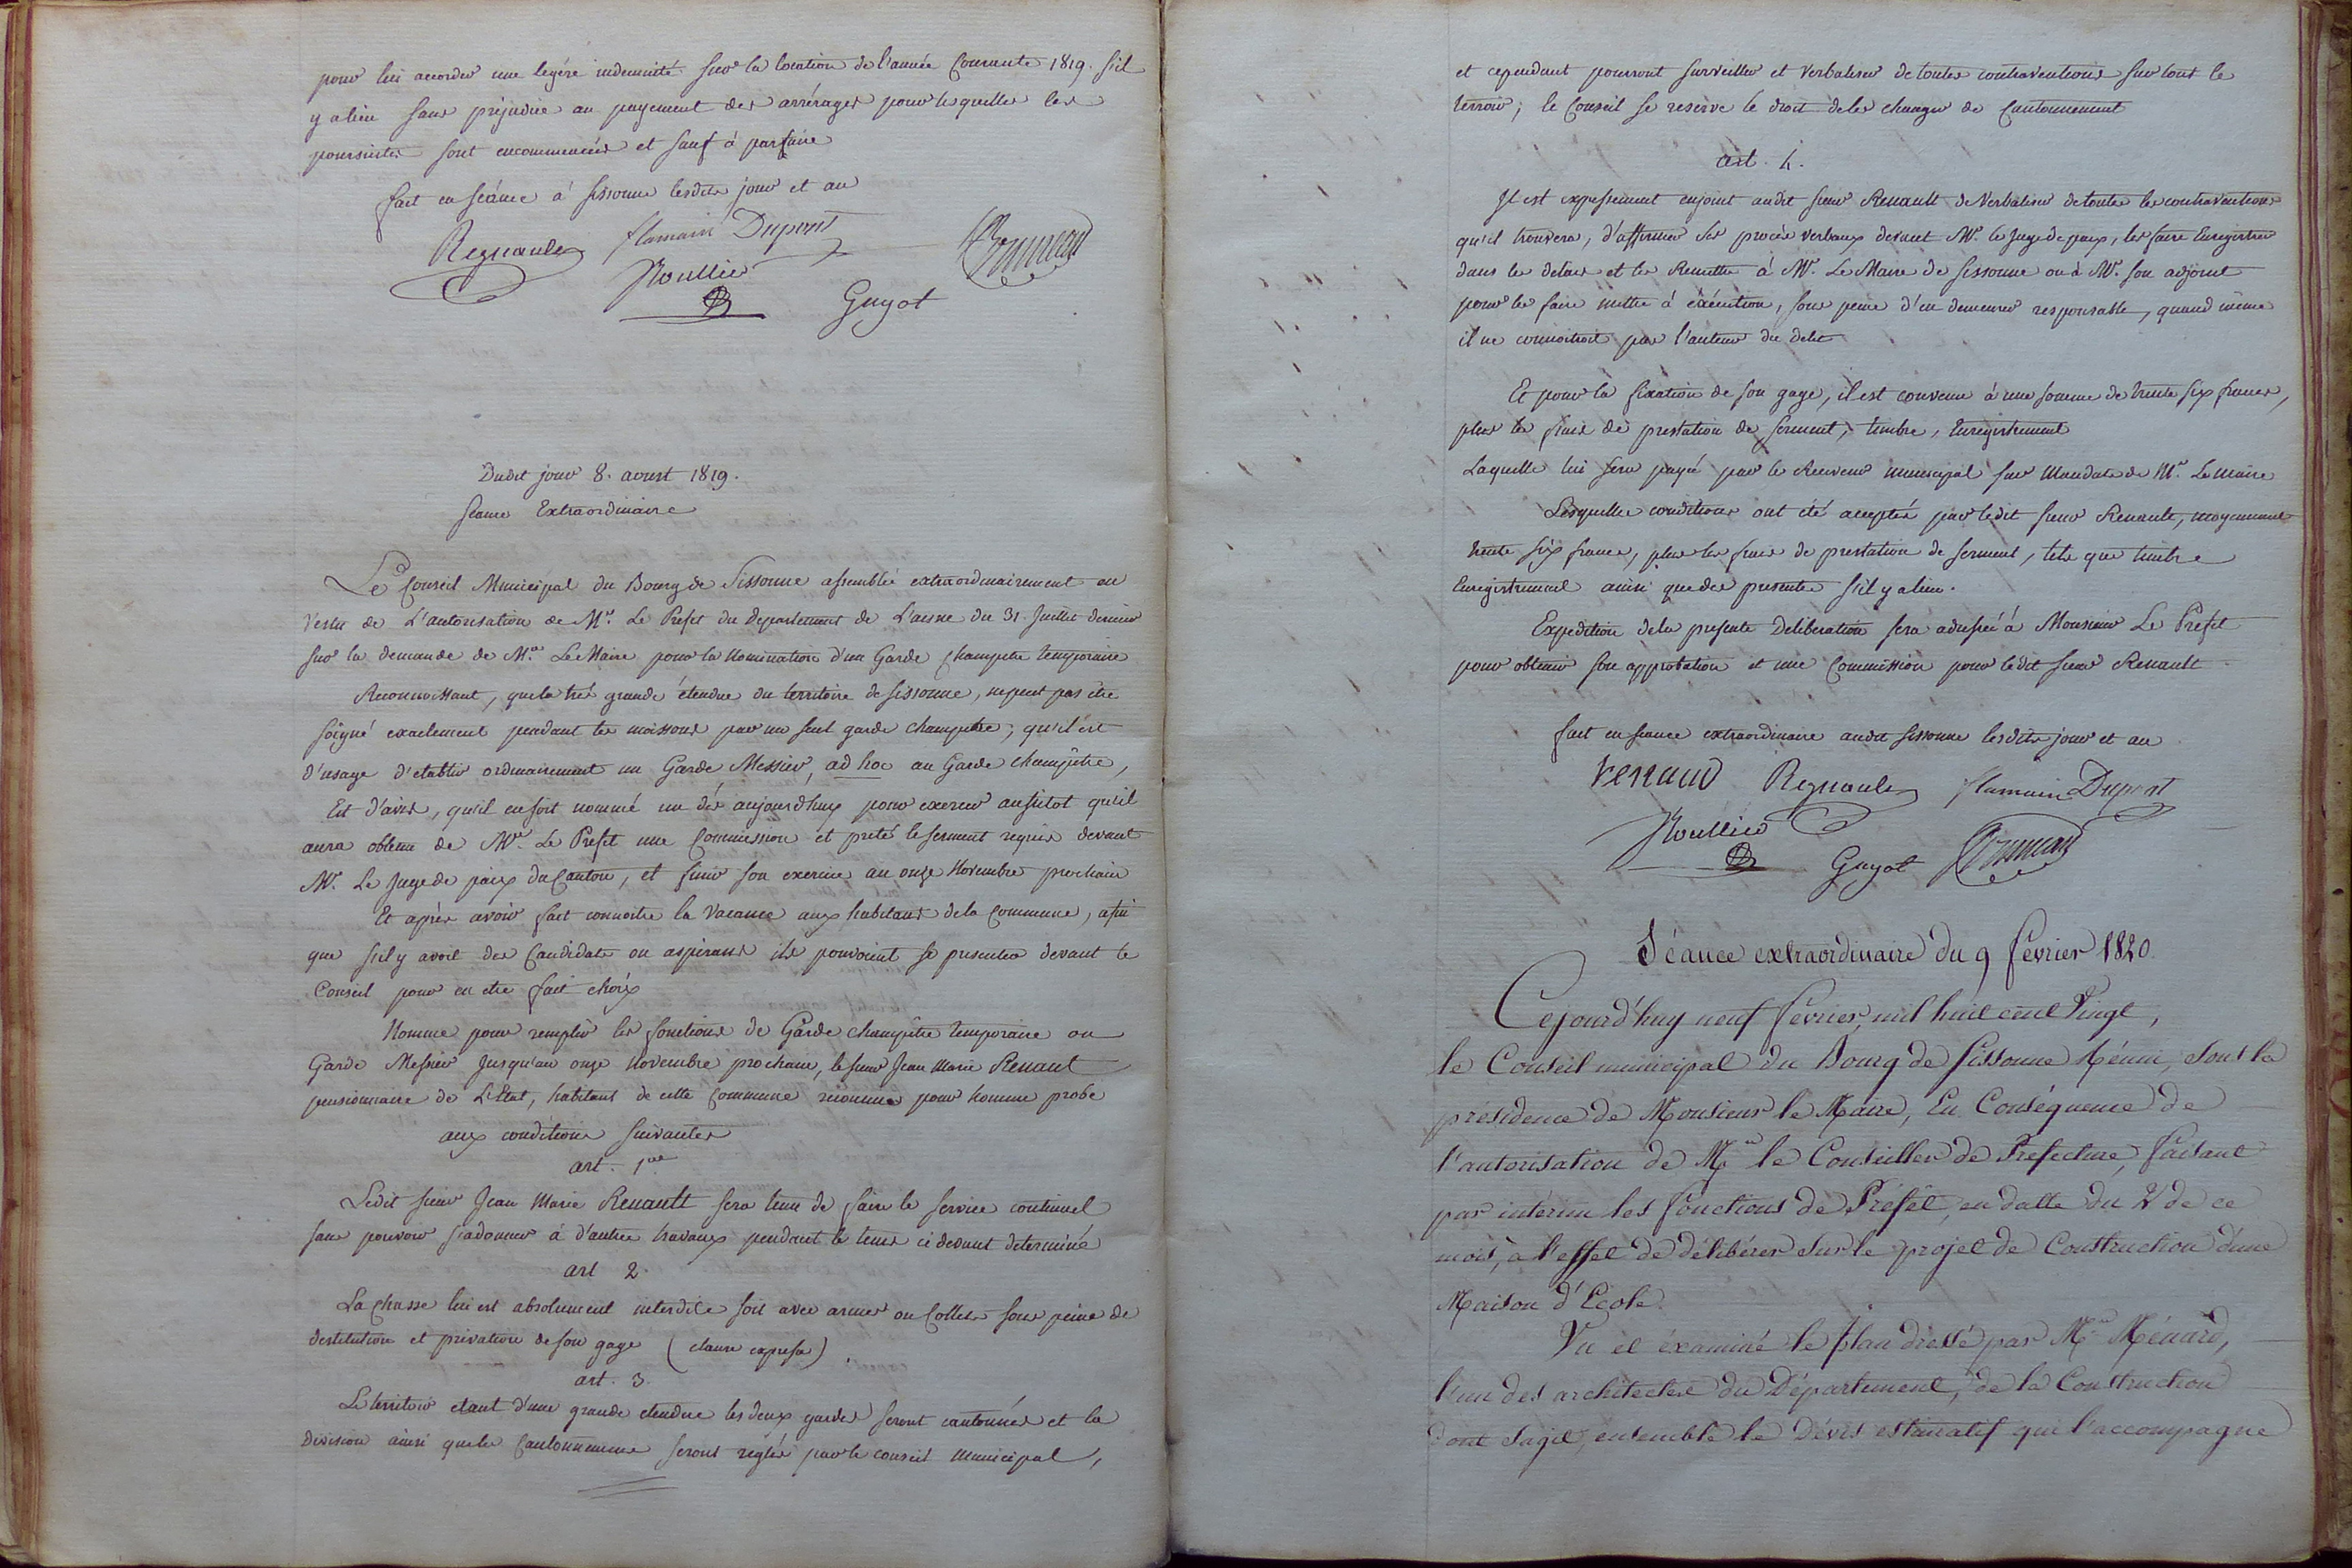 pour lui accorder une legére indemnité sur la location de l'année Courante 1819. s'il
y a lieu sans préjudice au payement des arrérages pour lesquelles les
poursuites sont encommencées et sauf à parfaire
fait en séance à Sissonne lesdits jour et an
Regnaule flamain Dupont
Roullie Guyot
Dudit jour 8. aoust 1819.
Seance Extraordinaire
Le Conseil Municipal du Bourg de Sissonne assemblée extraordinairement en
vertu de L'autorisation de Mr. Le Prefet du Departement de L'aisne du 31. Juillet dernier
sur la demande de Mr. Le Maire pour la Nomination d'un Garde Champetre temporaire
Reconnoissant, que la tré grande étendue du territoire de Sissonne, ne peut pas être
soigné exactement pendant les moissons par un seul garde champetre; qu'il est
d'usage d'etablir ordinairement un Garde Messier, ad hoc au Garde champêtre,
Est d'avis, qu'il en soit nommé un dès aujourdhuy pour exercer aussitot qu'il
aura obtenu de Mr. Le Prefet une Commission et preté le serment requis devant
Mr. Le Juge de paix du Canton, et finir son exercice au onze Novembre prochain
Et après avoir fait connoitre la Vacance aux habitans de la Commune, afin
que s'il y avoit des Candidats ou aspirans ils pouvoient se presenter devant le
Conseil pour en etre fait choix
Nomme pour remplir les fonctions de Garde champêtre temporaire ou
Garde Messier Jusqu'au onze Novembre prochain, le sieur Jean Marie Renault
pensionnaire de L'Etat, habitant de cette Commune reconnu pour homme probe
aux conditions suivantes
art. 1er
Ledit sieur Jean Marie Renault sera tenu de faire le service continuel
sans pouvoir s'adonner à d'autres travaux pendant le tems ci devant determiné
art 2.
La chasse lui est absolument interdite soit avec armes ou Collets sous peine de
destitution et privation de son gage (clause expresse).
art. 3.
Le territoir etant d'une grande etendue les deux gardes seront cantonnés et la
division ainsi que les Cantonnemens seront reglés par le conseil municipal,
et cependant pourront surveiller et verbaliser de toutes contraventions sur tout le
terroir; le Conseil se reserve le droit de les changer de Cantonnement
art. 4.
Il est expressement enjoint audit sieur Renault de Verbaliser de toutes les contraventions
qu'il trouvera, d'affirmer ses procès verbaux devant Mr. le Juge de paix, les faire Enregistrer
dans les delais et les Remettre à Mr. Le Maire de Sissonne ou à Mr. son adjoint
pour les faire mettre à éxécution, sous peine d'en demeurer responsable, quand même
il ne connoitroit pas l'auteur du delit
Et pour la fixation de son gage, il est convenu à une somme de trente six francs,
plus les frais de prestation de serment, timbre, Enregistrement
Laquelle lui sera payée par le Receveur municipal sur Mandats de Mr. Le Maire
Lesquelles conditions ont été acceptés par ledit sieur Renault, moyennant
trente six francs, plus les frais de prestation de serment, tels que timbre
Enregistrement ainsi que des presentes s'il y a lieu.
Expedition de la presente Deliberation sera adressée à Monsieur Le Prefet
pour obtenir son approbation et une Commission pour ledit sieur Renault
fait en seance extraordinaire audit Sissonne lesdits jour et an
Renaud Regnaule flamain Dupont
Roullie Guyot
Séance extraordinaire du 9 février 1820.
Cejourd'huy neuf février, mil huit cent Vingt,
le Conseil municipal du Bourg de Sissonne Réuni, sous la
présidence de Monsieur le Maire, En Conséquence de
l'autorisation de Mr le Conseiller de Prefecture, faisant
par intérim les fonctions de Préfet, en datte du 2 de ce
mois, à l'effet de délibérer sur le projet de Construction d'une
Maison d'Ecole.
Vu et éxaminé le plan dressé par Mr Ménard,
l'un des architectes du Département, de la Construction
dont s'agit, ensemble le Dévis estimatif qui l'accompagne